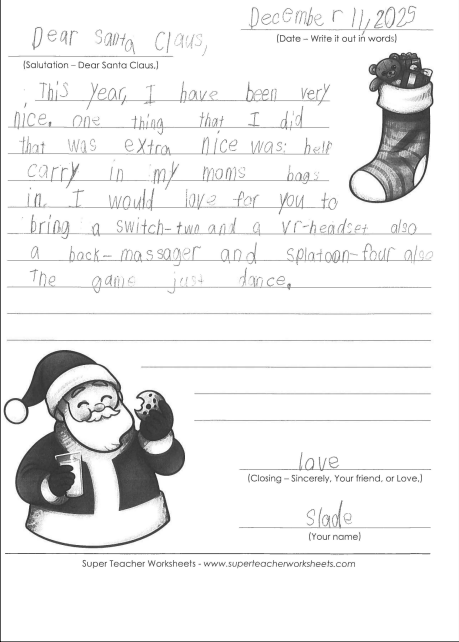 December 11, 2025
(Date – Write it out in words)
Dear Santa Claus,
(Salutation – Dear Santa Claus,)
This year, I have been very
nice. one thing that I did
that was extra nice was: help
carry in my moms bags
in. I would love for you to
bring a switch-two and a vr-headset also
a back-massager and splatoon-four also
The game just dance.
love
(Closing – Sincerely, Your friend, or Love,)
Slade
(Your name)
Super Teacher Worksheets - www.superteacherworksheets.com